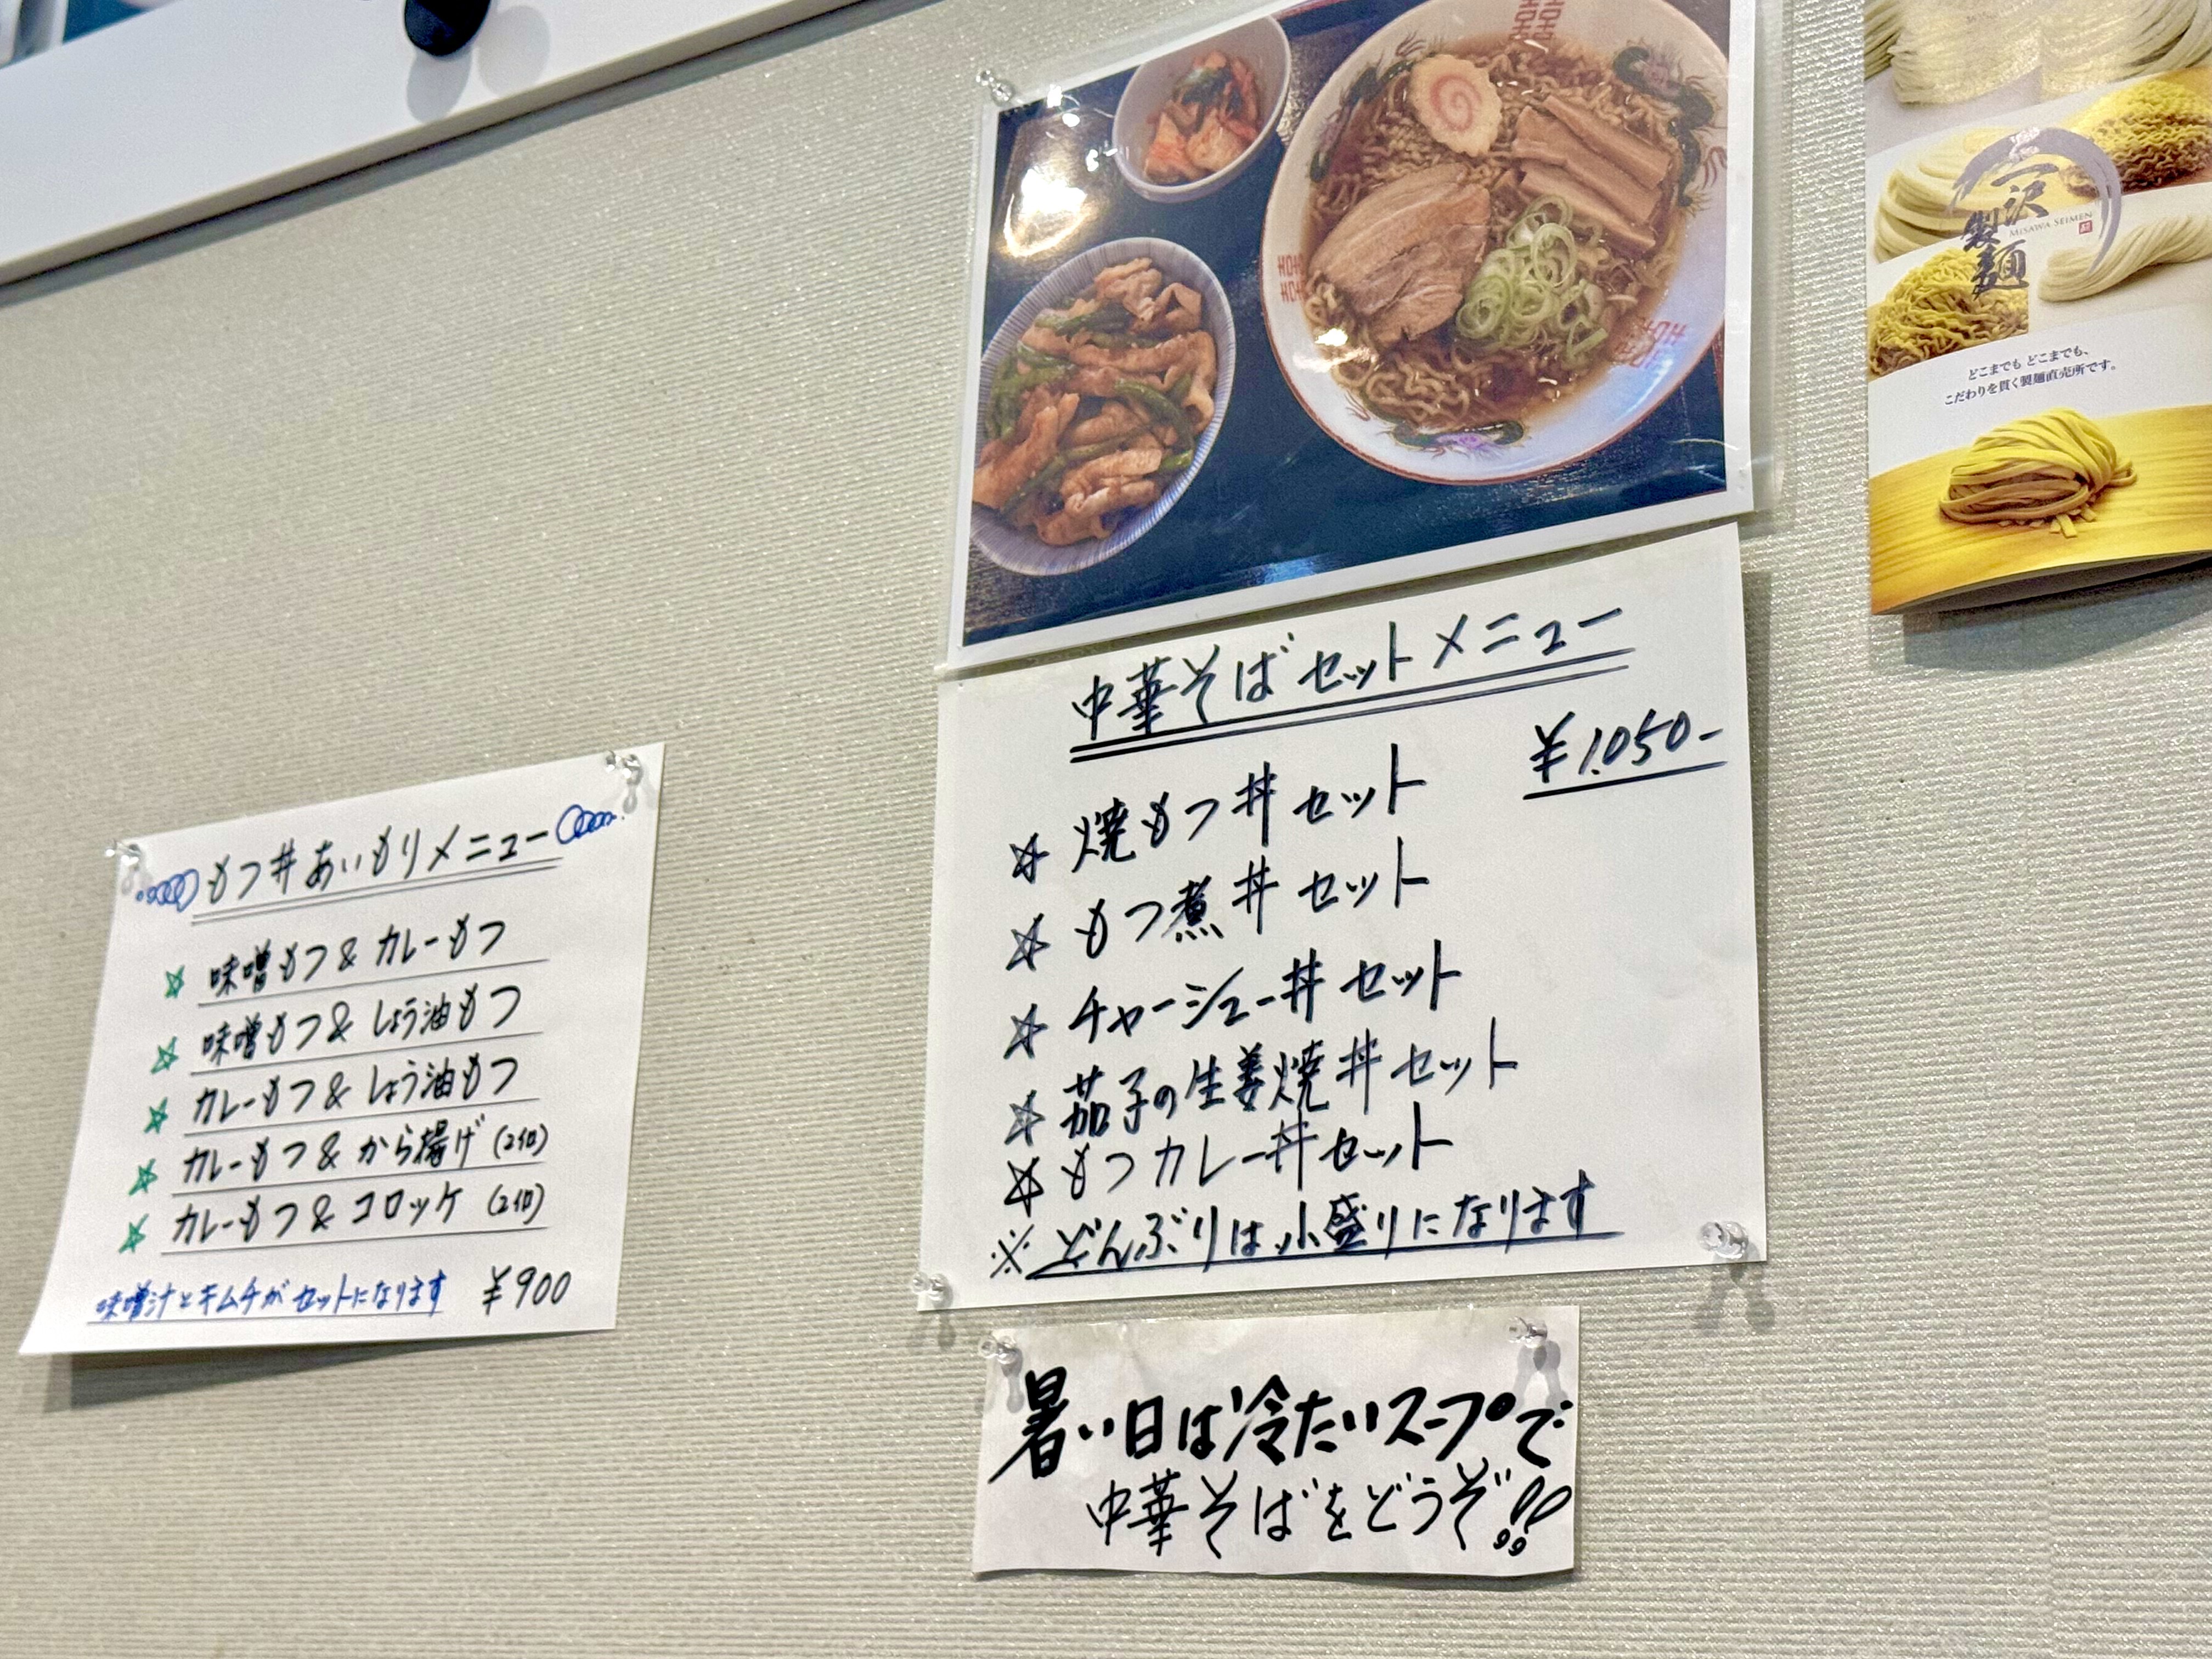 もつ丼あいもりメニュー
☆ 味噌もつ & カレーもつ
☆ 味噌もつ & しょう油もつ
☆ カレーもつ & しょう油もつ
☆ カレーもつ & から揚げ (2個)
☆ カレーもつ & コロッケ (2個)
味噌汁とキムチがセットになります ¥900
中華そばセットメニュー
¥1,050-
☆ 焼もつ丼セット
☆ もつ煮丼セット
☆ チャーシュー丼セット
☆ 茄子の生姜焼丼セット
☆ もつカレー丼セット
※ どんぶりは小盛りになります
暑い日は冷たいスープで
中華そばをどうぞ!!
製麺
MISAWA SEIMEN
どこまでも どこまでも、
こだわりを貫く製麺直売所です。